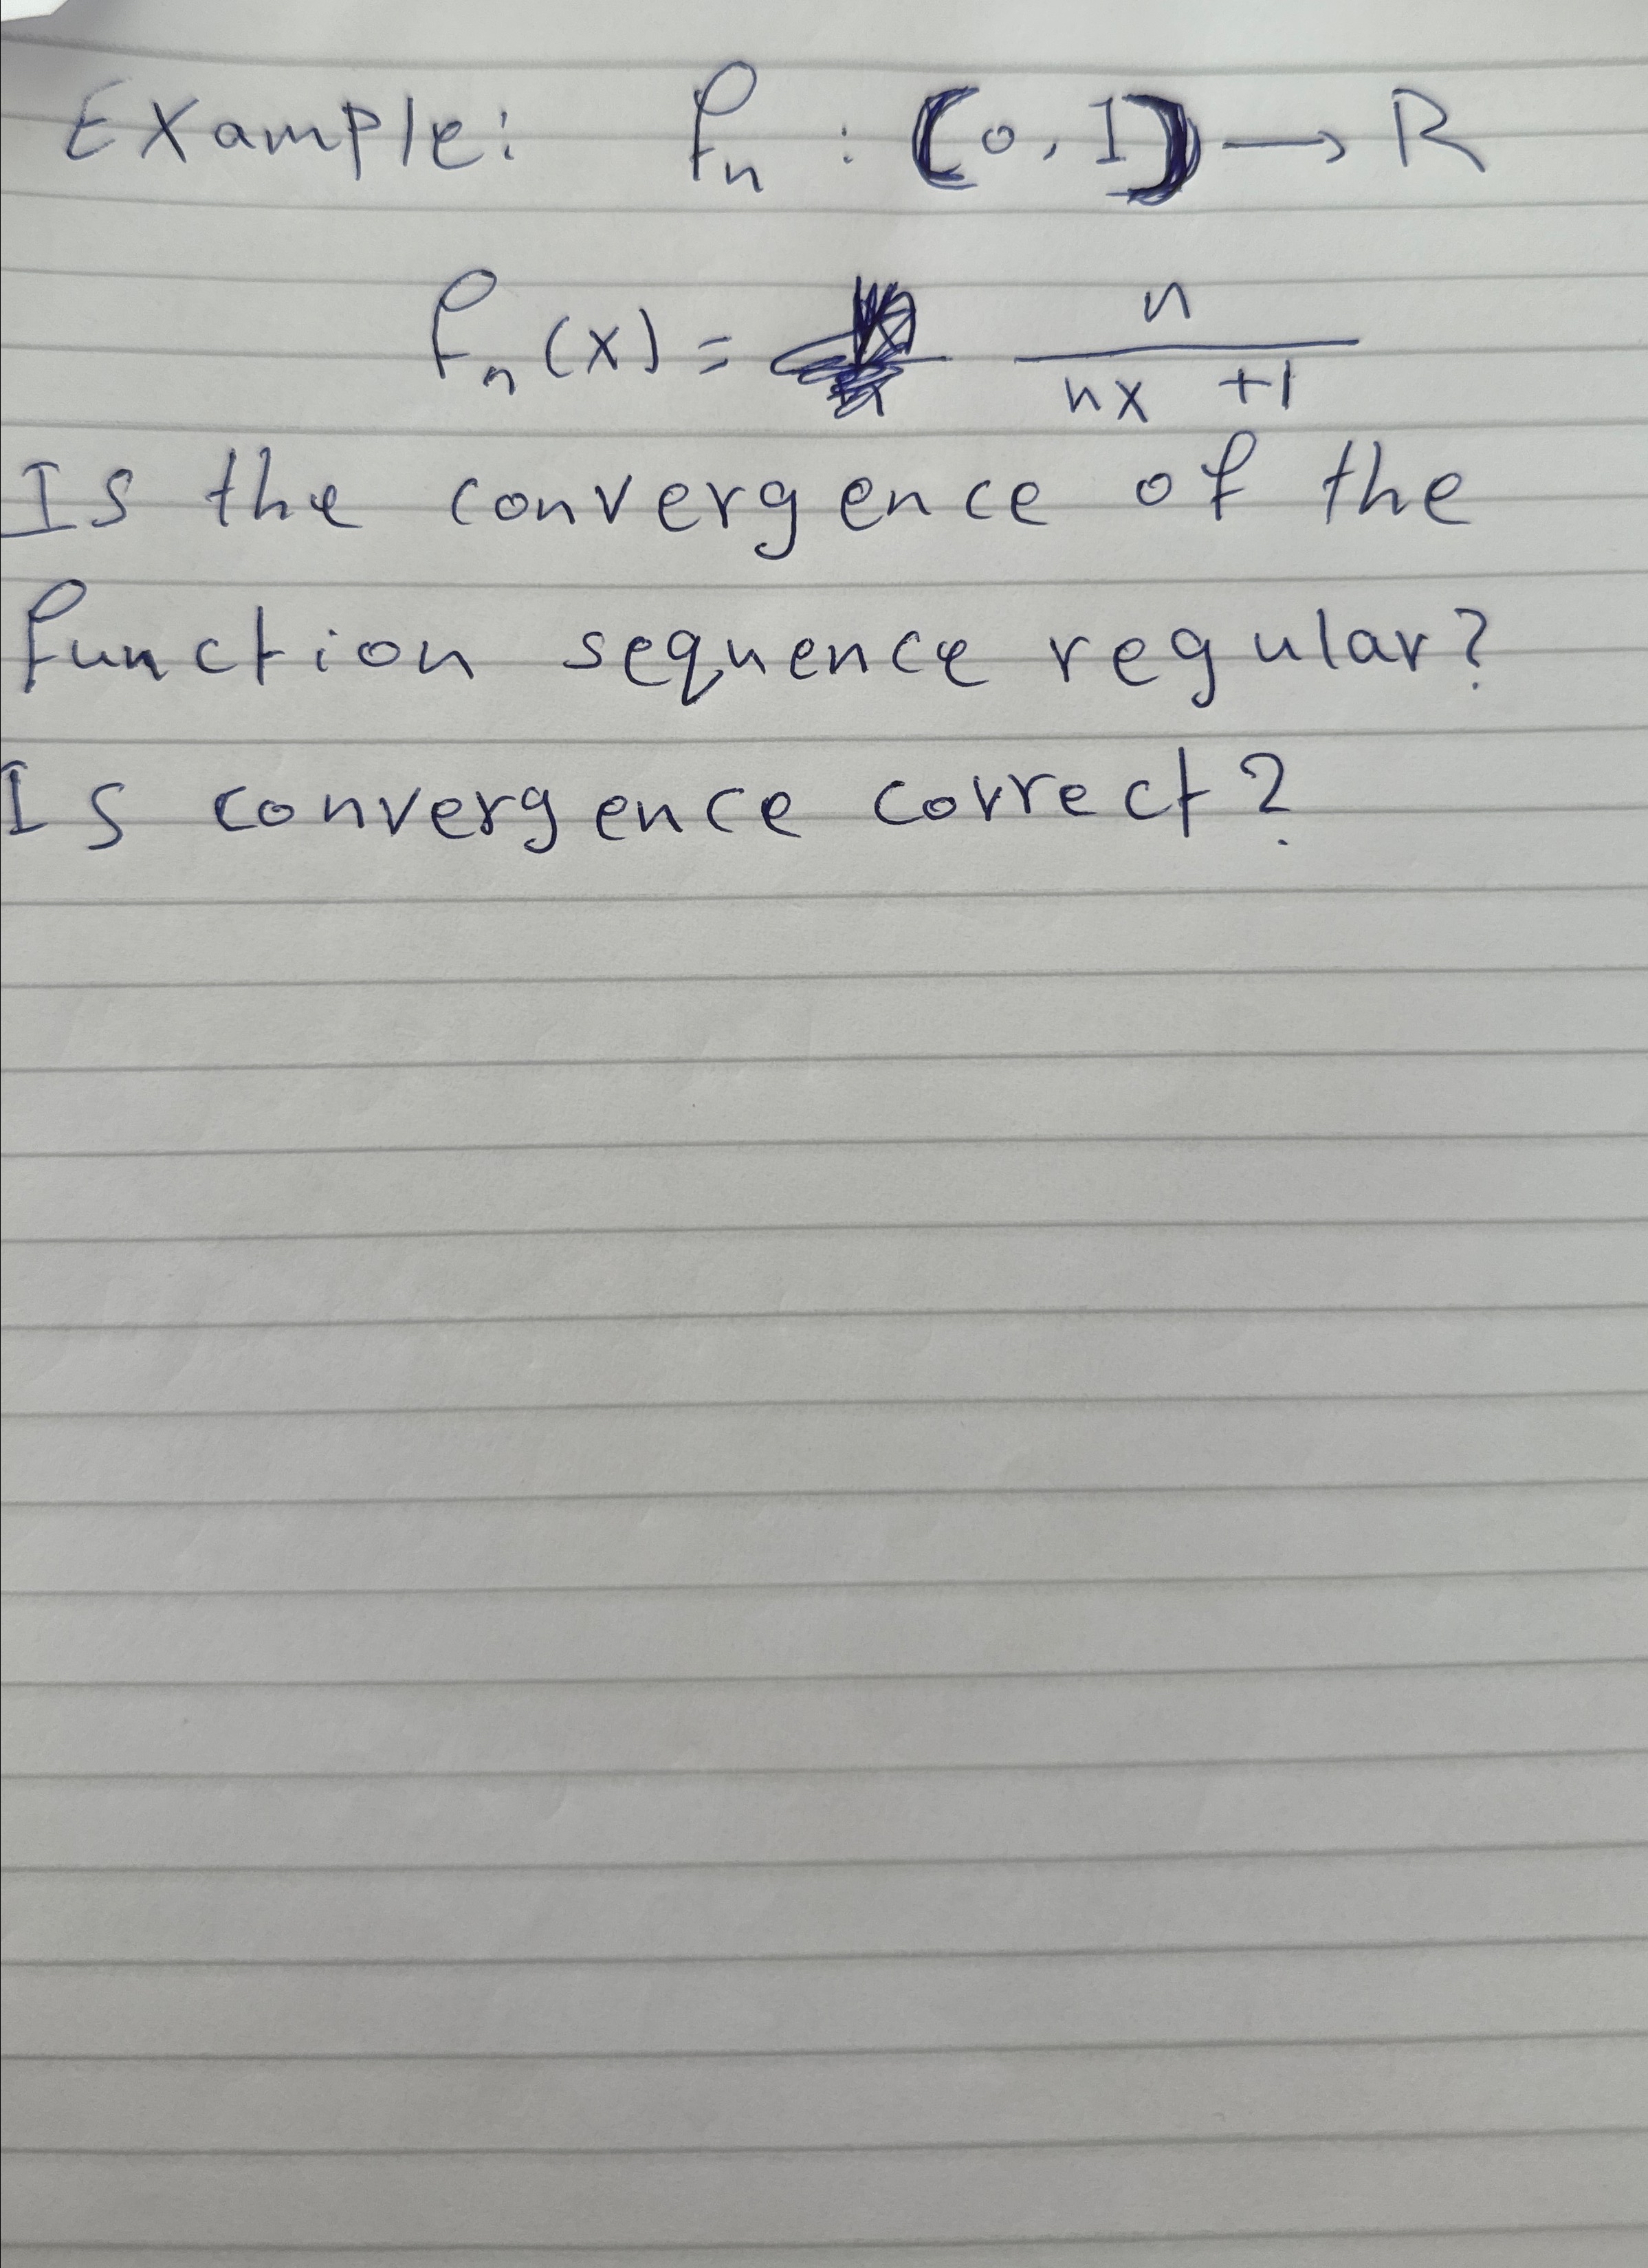 Example: fn : (0,1) → R
fn(x) = n / (nx + 1)
Is the convergence of the
function sequence regular?
Is convergence correct?